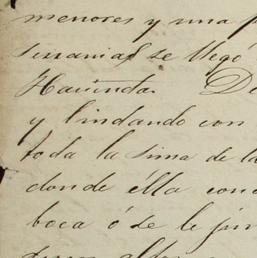 menores y una p
serranias se llegó
Hacienda. De
y lindando con
toda la sima de la
donde élla con
boca ó se le jun